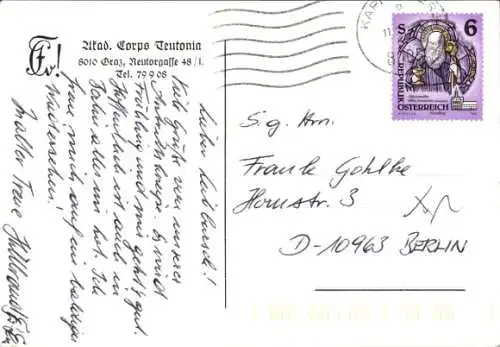 Akad. Corps Teutonia
8010 Graz, Neutorgasse 48/I.
Tel. 79 9 08
Lieber Leibbursch!
Viele Grüße von unserer
Es wird
Frühling und mir geht's gut.
Hoffentlich ist auch in
Horn alles im Lot. Ich
freue mich auf ein baldiges
Wiedersehen!
In alter Treue
KAP
S 6
REPUBLIK
ÖSTERREICH
S.g. Hrn.
Frank Gohlke
Hornstr. 3
D-10963 BERLIN